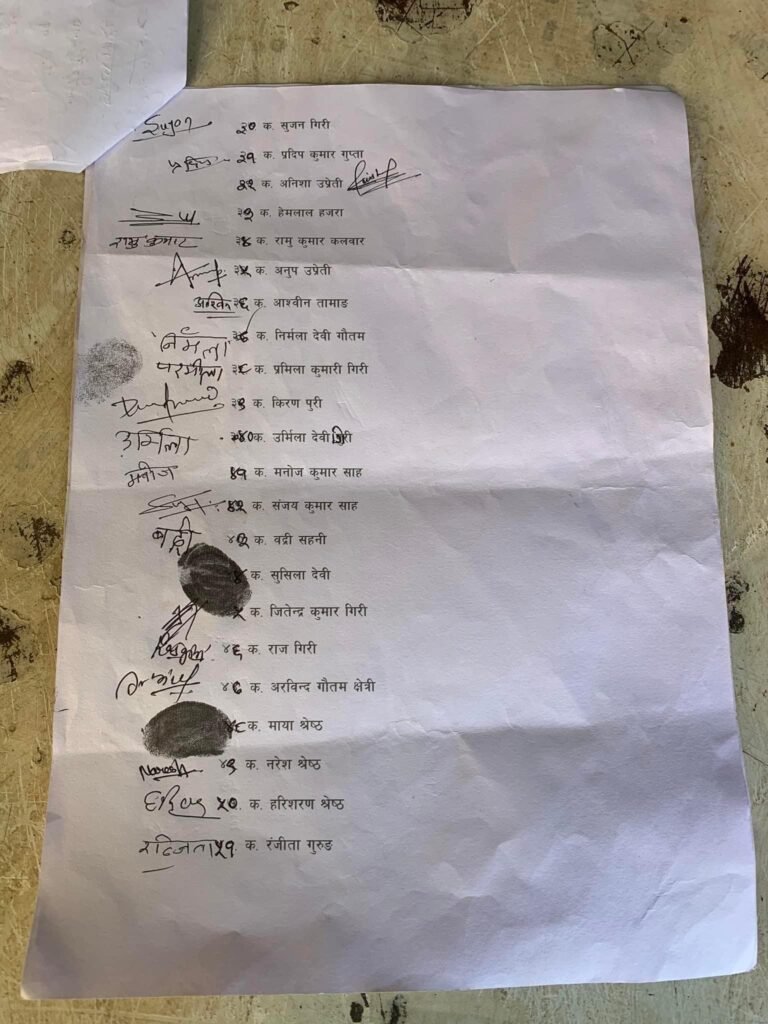 Sujan ३० क. सुजन गिरी
प्रदिप ३१ क. प्रदिप कुमार गुप्ता
क. अनिशा उप्रेती
क. हेमलाल हजरा
रामु कुमार ३४ क. रामु कुमार कलवार
३५ क. अनुप उप्रेती
आश्विन ३६ क. आश्वीन तामाङ
निर्मला क. निर्मला देवी गौतम
परमीला ३८ क. प्रमिला कुमारी गिरी
३९ क. किरण पुरी
उर्मिला ४० क. उर्मिला देवी गिरी
मनोज ४१ क. मनोज कुमार साह
४२ क. संजय कुमार साह
बद्री ४३ क. वद्री सहनी
४ क. सुसिला देवी
५ क. जितेन्द्र कुमार गिरी
४६ क. राज गिरी
४८ क. अरविन्द गौतम क्षेत्री
क. माया श्रेष्ठ
Naresh ४९ क. नरेश श्रेष्ठ
५० क. हरिशरण श्रेष्ठ
५१ क. रंजीता गुरुङ